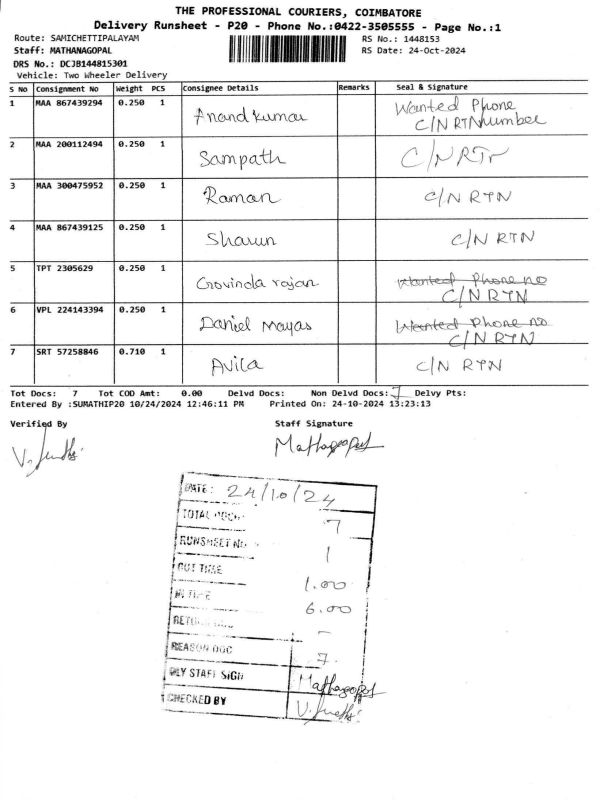 THE PROFESSIONAL COURIERS, COIMBATORE
Delivery Runsheet - P20 - Phone No.:0422-3505555 - Page No.:1
Route: SAMICHETTIPALAYAM RS No.: 1448153
Staff: MATHANAGOPAL RS Date: 24-Oct-2024
DRS No.: DCJB144815301
Vehicle: Two Wheeler Delivery
S No Consignment No Weight PCS Consignee Details Remarks Seal & Signature
1 MAA 867439294 0.250 1 Anand kumar Wanted Phone
C/N RTN number
2 MAA 200112494 0.250 1 Sampath C/N RTN
3 MAA 300475952 0.250 1 Raman C/N RTN
4 MAA 867439125 0.250 1 Sharun C/N RTN
5 TPT 2305629 0.250 1 Govinda rajan Wanted Phone no
C/N RTN
6 VPL 224143394 0.250 1 Daniel Mayas Wanted Phone no
C/N RTN
7 SRT 57258846 0.710 1 Avila C/N RTN
Tot Docs: 7 Tot COD Amt: 0.00 Delvd Docs: Non Delvd Docs: 7 Delvy Pts:
Entered By :SUMATHIP20 10/24/2024 12:46:11 PM Printed On: 24-10-2024 13:23:13
Verified By Staff Signature
DATE: 24/10/24
TOTAL 7
RUNSHEET NO 1
OUT TIME 1.00
IN TIME 6.00
-
REASON DOC 7
DLY STAFF SIGN
CHECKED BY